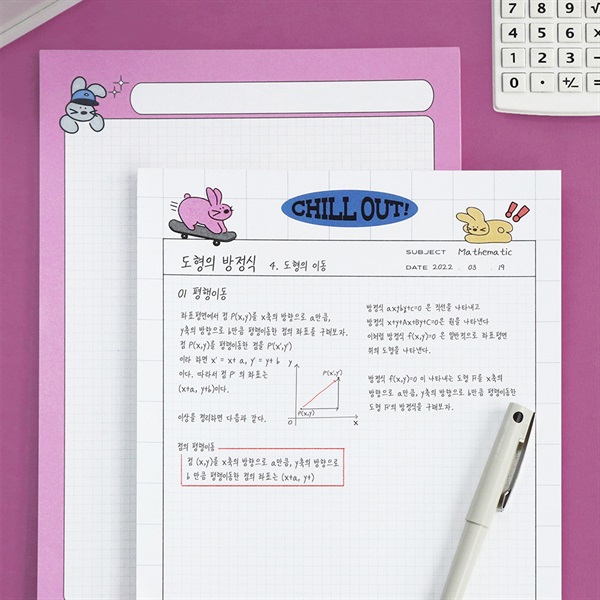 7 8 9 √
4 5 6 ×
1 2 3
0 · +/- =
CHILL OUT!
SUBJECT Mathematic
DATE 2022 . 03 . 19
도형의 방정식 4. 도형의 이동
01 평행이동
좌표평면에서 점 P(x,y)를 x축의 방향으로 a만큼,
y축의 방향으로 b만큼 평행이동한 점의 좌표를 구해보자.
점 P(x,y)를 평행이동한 점을 P'(x',y')
이라 하면 x' = x+a, y' = y+b
이다. 따라서 점 P' 의 좌표는
(x+a, y+b)이다.
y
P(x',y')
P(x,y)
O
x
이상을 정리하면 다음과 같다.
점의 평행이동
점 (x,y)를 x축의 방향으로 a만큼, y축의 방향으로
b 만큼 평행이동한 점의 좌표는 (x+a, y+)
방정식 ax+by+c=0 은 직선을 나타내고
방정식 x+y+Ax+By+C=0은 원을 나타낸다
이처럼 방정식 f(x,y)=0 은 일반적으로 좌표평면
위의 도형을 나타낸다.
방정식 f(x,y)=0 이 나타내는 도형 F를 x축의
방향으로 a만큼, y축의 방향으로 b만큼 평행이동한
도형 F'의 방정식을 구해보자.